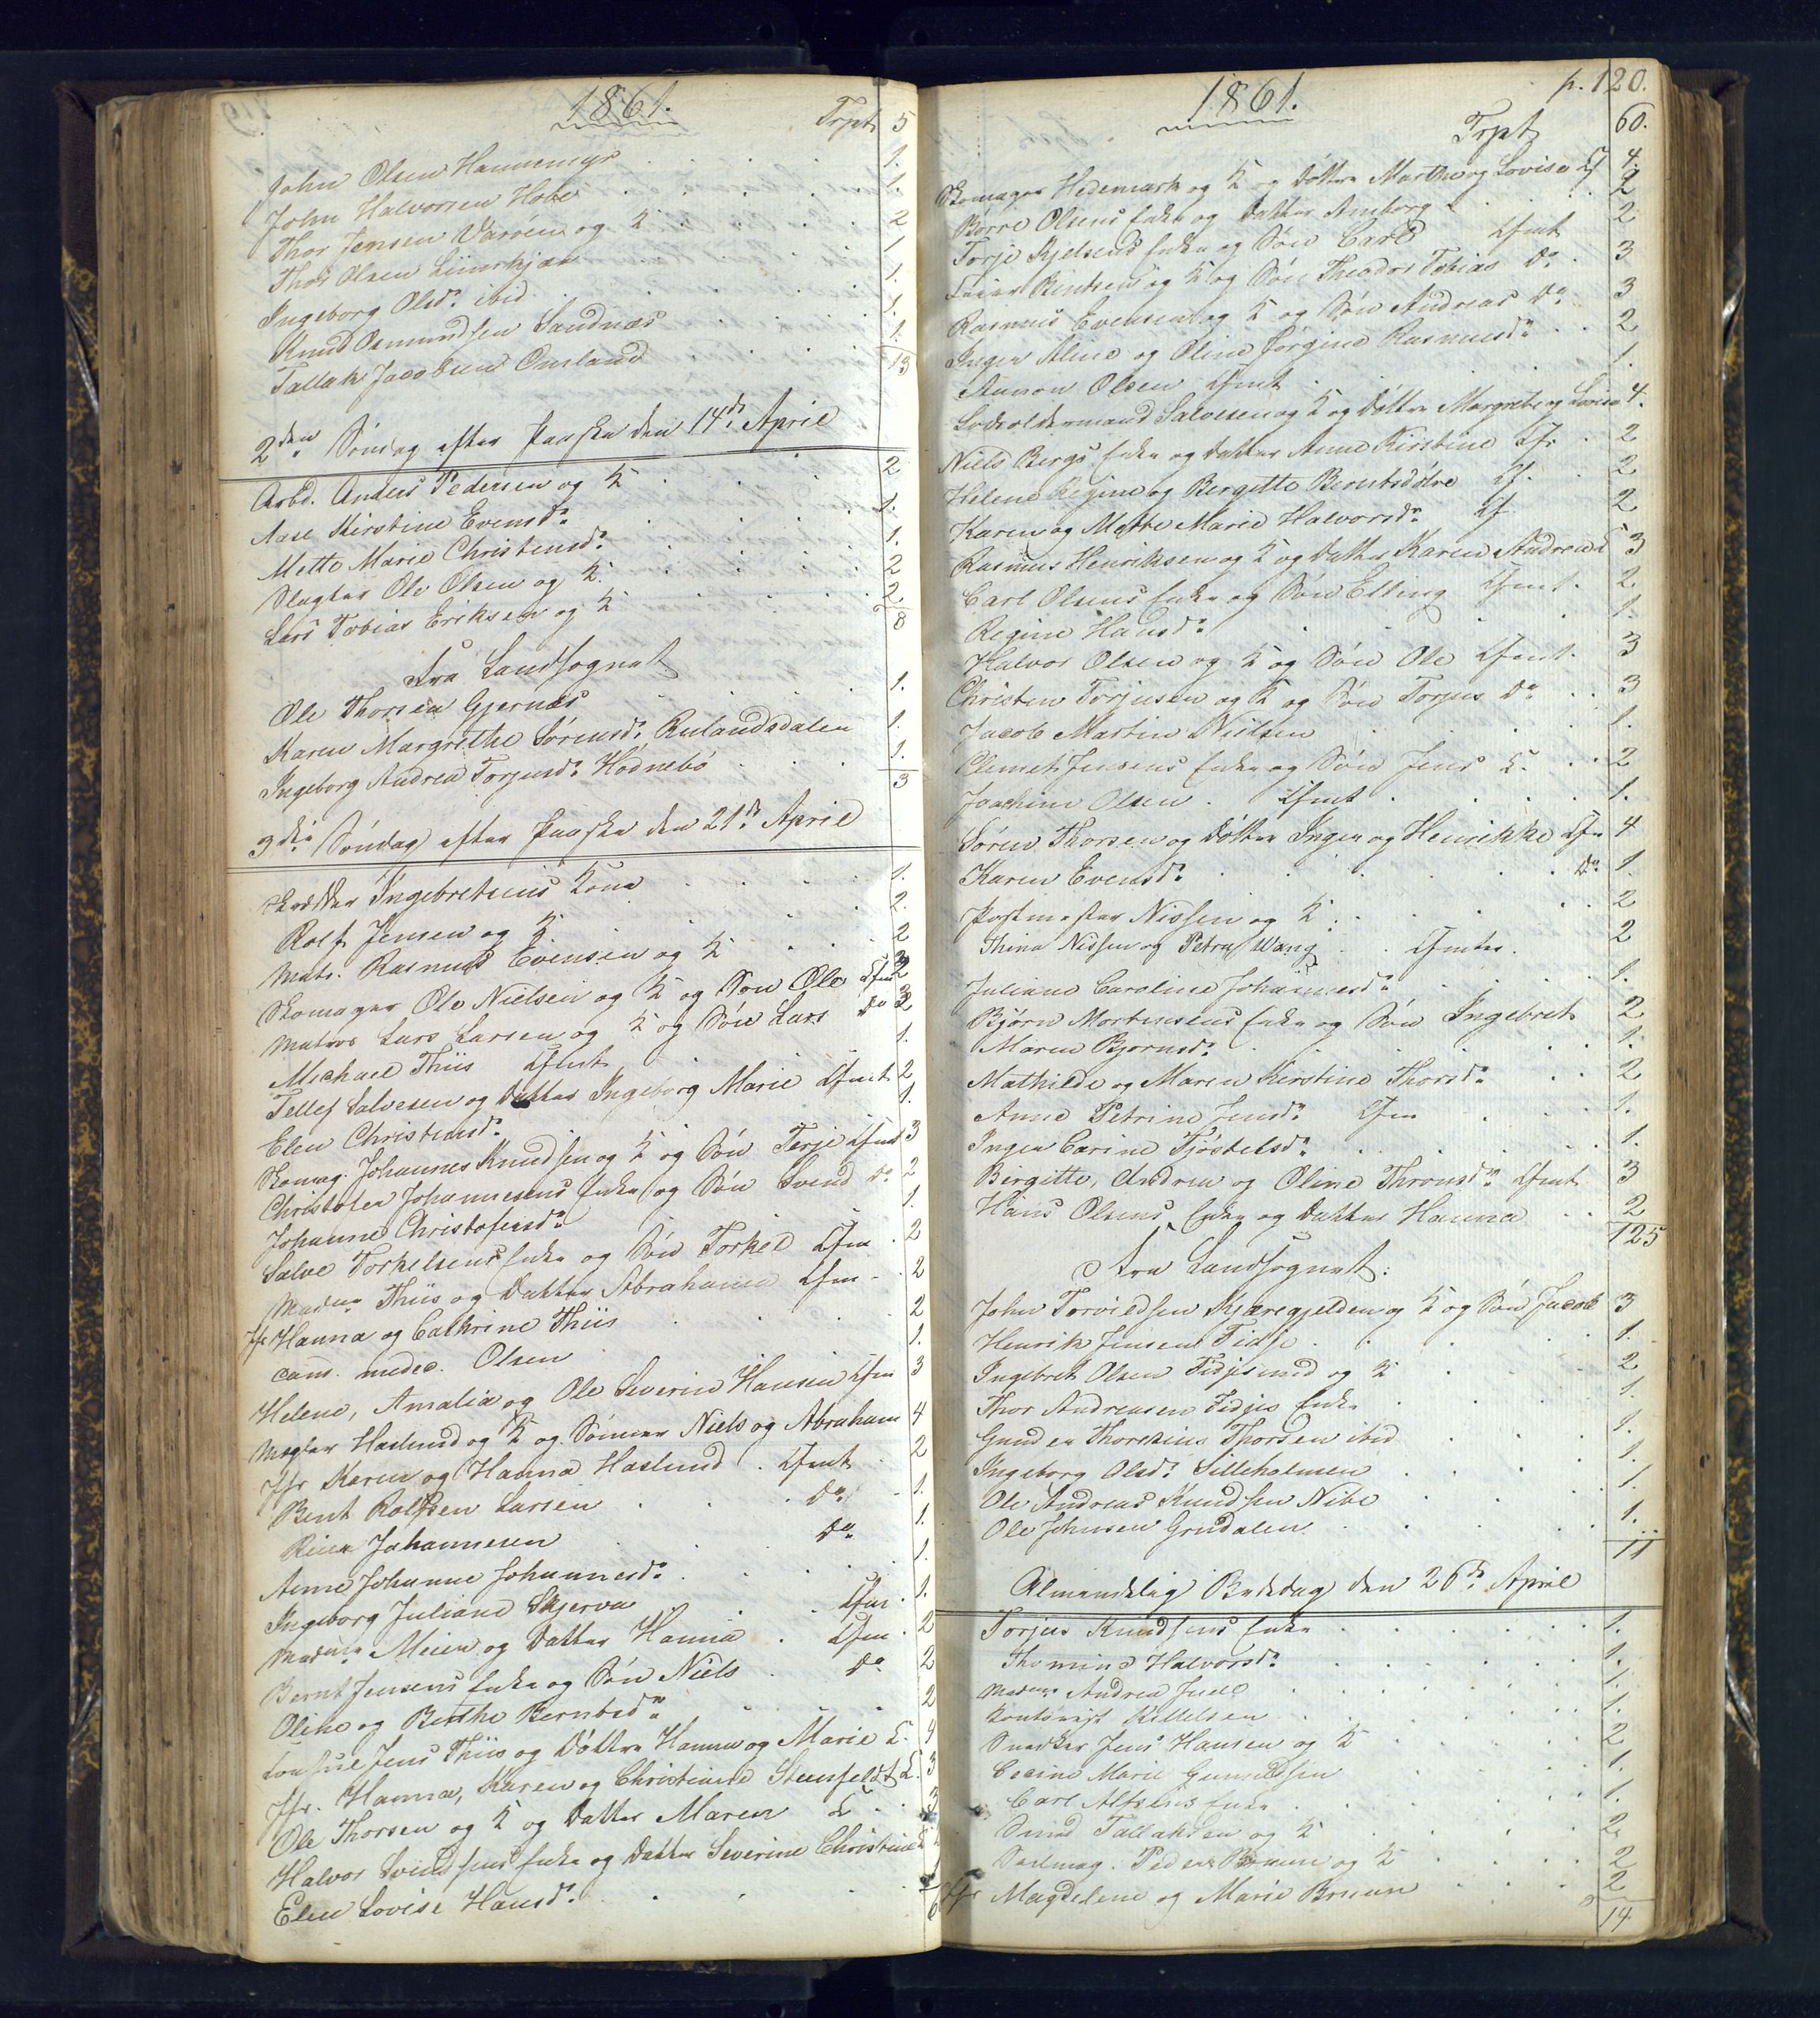 1861.
Trpt 5
John Olsen Hannemyr 1.
John Halvorsen Hobe 1.
Thor Jensen Varöen og K 2
Thor Olsen Liimskjær 1
Ingeborg Olsdr ibid 1.
Knud Osmundsen Sandnæs 1.
Tallak Jacobsen Omland 1.
13
2den Söndag efter Paaske den 14de April
Arbd. Anders Pedersen og K 2
Aase Kirstine Evensdr 1.
Mette Marie Christensdr 1.
Slagter Ole Olsen og K. 2
Lars Tobias Eriksen og K 2
8
Fra Landsognet
Ole Thorsen Gjernæs 1.
Karen Margrethe Sörensdr Rulandsdalen 1.
Ingeborg Andrea Torjusdr Hödnebö 1.
3
3die Söndag efter Paaske den 21de April
Skrædder Ingebretsens Kone 1.
Rolf Jensen og K 2.
Matr. Rasmus Evensen og K 2
Skomager Ole Nielsen og K og Sön Ole Cfmt 3
Matros Lars Larsen og K og Sön Lars Do 3
Michael Thiis Cfmt 1.
Tellef Salvesen og Datter Ingeborg Marie Cfmt 2
Elen Christensdr 1.
Skomag. Johannes Knudsen og K og Sön Terje Cfmt 3
Christofer Johannesens Enke og Sön Svend Do 2
Johanne Christofersdr 1.
Salve Torkelsens Enke og Sön Torkel Cfm 2
Madme Thiis og Datter Abrahama Cfm 2
Jfr Hanna og Cathrine Thiis 2
cand. medec. Olsen 1.
Helene, Amalia og Ole Severin Hansen Cfm 3
Mægler Haslund og K og Sönner Niels og Abraham 4
Jfr Karen og Hanna Haslund Cfmt 2
Bent Rolfsen Larsen Do 1.
Rina Johannesen Do 1.
Anne Johanne Johannesdr 1.
Ingeborg Juliane Skjerva Cfm 1.
Madme Meien og Datter Hanna Cfm 2
Bernt Jensens Enke og Sön Niels Do 2
Oline og Berthe Berntsdr 2
Consul Jens Thiis og Döttre Hanna og Marie C. 4
Jfr. Hanna, Karen og Christiane Steenfeldt C. 3
Ole Thorsen og K og Datter Maren C 3
Halvor Svendsens Enke og Datter Severine Christine
Elen Lovise Hansdr
1861.
p. 120.
Trpt 60.
Skomager Hedemark og K og Döttre Marthe og Lovise Cf 4.
Börre Olsens Enke og Datter Amborg 2
Torje Kjelsens Enke og Sön Carl Cfmt 2
Bentsen og K og Sön Theodor Tobias Do 3
Rasmus Evensen og K og Sön Andreas Do 3
Inger Aline og Oline Jörgine Rasmusdr 2
Aanon Olsen Cfmt 1.
Lodsoldermand Salvesen og K og Döttre Margrete og Lovise 4.
Niels Bergs Enke og Datter Anne Kirstine Cfr 2
Helene Regine og Bergitte Berntsdötre Cf. 2
Karen og Mette Marie Halvorsdr Cf 2
Rasmus Henriksen og K og Datter Karen Andrea C 3
Carl Olsens Enke og Sön Elling Cfmt. 2
Regine Hansdr 1.
Halvor Olsen og K og Sön Ole Cfmt. 3
Christen Torjusen og K og Sön Torjus Do 3
Jacob Martin Nielsen 1.
Clemet Jensens Enke og Sön Jens C. 2
Joachim Olsen Cfmt 1.
Sören Thorsen og Döttre Inger og Henrikke Cfm 4
Karen Evensdr Do 1.
Postmester Nissen og K. 2
Thina Nissen og Petra Wang Cfmtr. 2
Juliane Caroline Johannesdr 1.
Björn Mortensens Enke og Sön Ingebret 2
Maren Bjornsdr 1.
Mathilde og Maren Kirstine Thorsdr 2
Anne Petrine Jensdr Cfm 1.
Inger Carine Tjöstelsdr 1.
Birgitte, Andrea og Oline Thronsdr Cfmt 3
Hans Olsens Enke og Datter Hanna 2
125
Fra Landsognet:
John Torvildsen Kjæregjelden og K og Sön Jacob 3
Henrik Jensen Fidje 1.
Ingebret Olsen Fidjesund og K 2
Thor Andreasen Fidjes Enke 1.
Gunder Thorsens Thorsen ibid 1.
Ingeborg Olsdr Silleholmen 1.
Ole Andreas Knudsen Nibe 1.
Ole Johnsen Grudalen 1.
11
Almindelig Bededag den 26de April
Torjus Knudsens Enke 1.
Thomine Halvorsdr 1.
Madme Andrea Juell 1.
Contorist Kittelsen 1.
Snedker Jens Hansen og K 2
Cecine Marie Gunuldsen 1.
Carl Alfsens Enke 1.
Svend Tallaksen og K 2
Seilmag. Peder Bruun og K 2
Jfr Magdelene og Marie Bruun 2
14